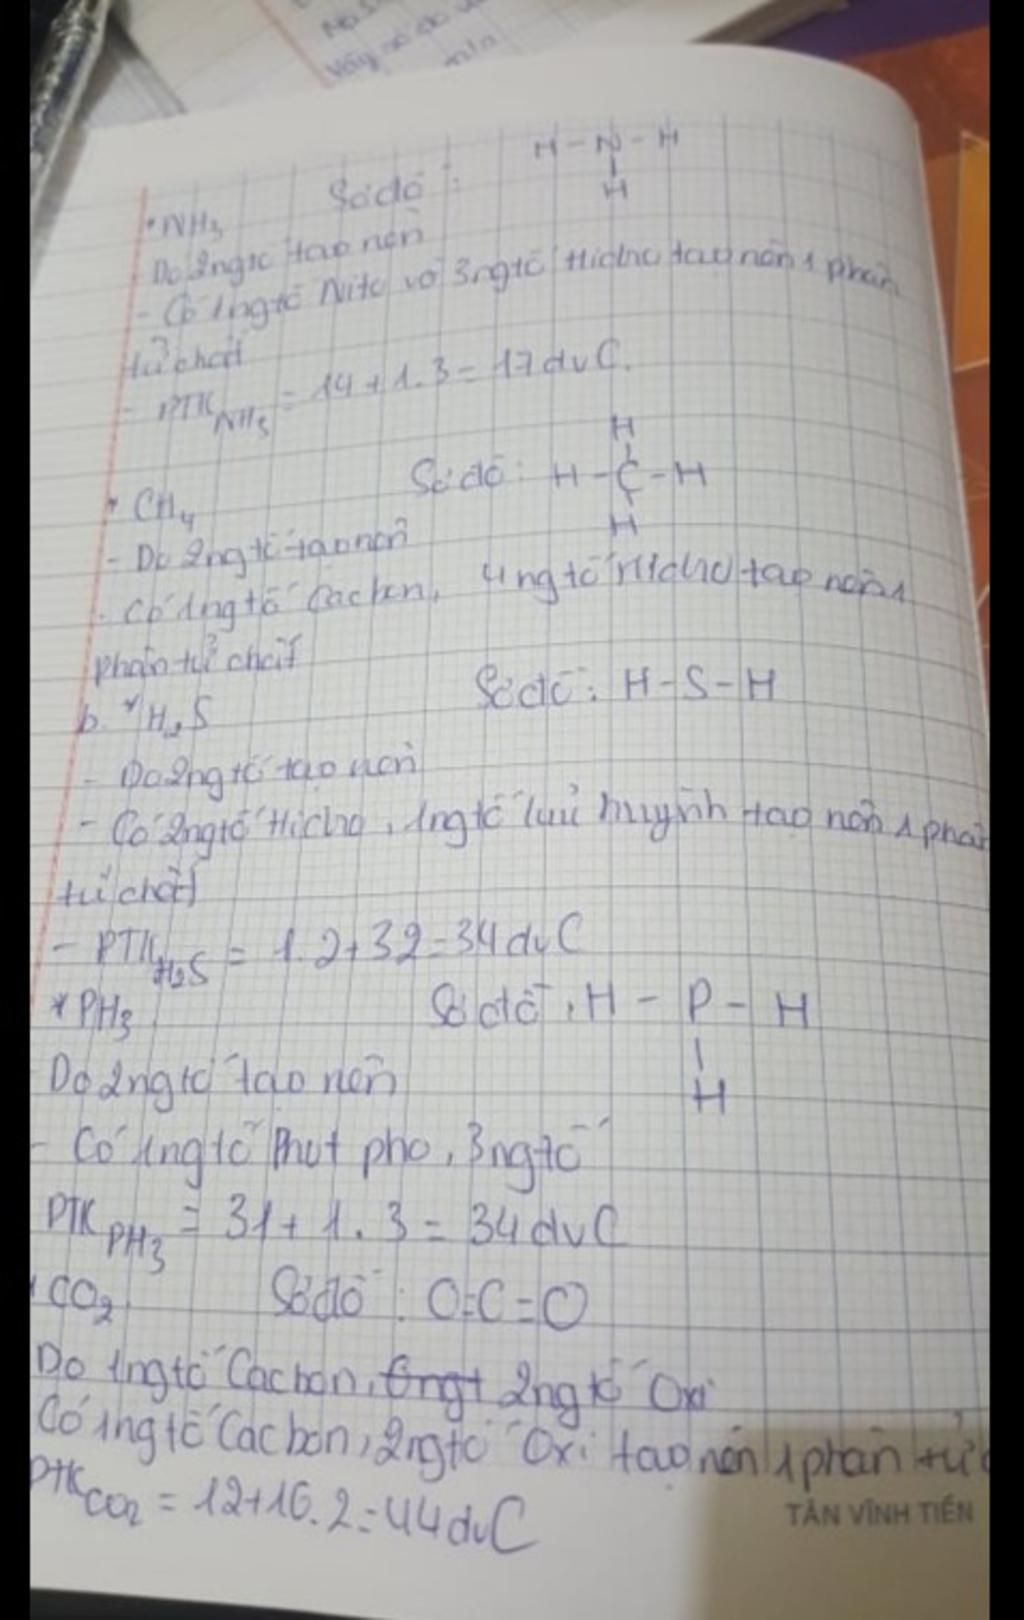 H - N - H
Sơ đồ :
H
* NH₃
Do 2 ng tố tạo nên
- Có 1 ng tố Nitơ và 3 ng tố Hidro tạo nên 1 phân
tử chất
- PTK NH₃ = 14 + 1.3 = 17 đvC.
H
Sơ đồ : H - C - H
* CH₄
H
- Do 2 ng tố tạo nên
- Có 1 ng tố Cacbon, 4 ng tố Hidro tạo nên 1
phân tử chất
Sơ đồ : H - S - H
b. * H₂S
- Do 2 ng tố tạo nên
- Có 2 ng tố Hidro, 1 ng tố lưu huỳnh tạo nên 1 phân
tử chất
- PTK H₂S = 1.2 + 32 = 34 đvC
* PH₃ Sơ đồ : H - P - H
Do 2 ng tố tạo nên
H
- Có 1 ng tố Phut pho, 3 ng tố
PTK PH₃ = 31 + 1.3 = 34 đvC
CO₂ Sơ đồ : O=C=O
Do 1 ng tố Cacbon, 2 ng tố Oxi
Có 1 ng tố Cacbon, 2 ng tố Oxi tạo nên 1 phân tử
PTK CO₂ = 12 + 16.2 = 44 đvC
TÂN VĨNH TIẾN